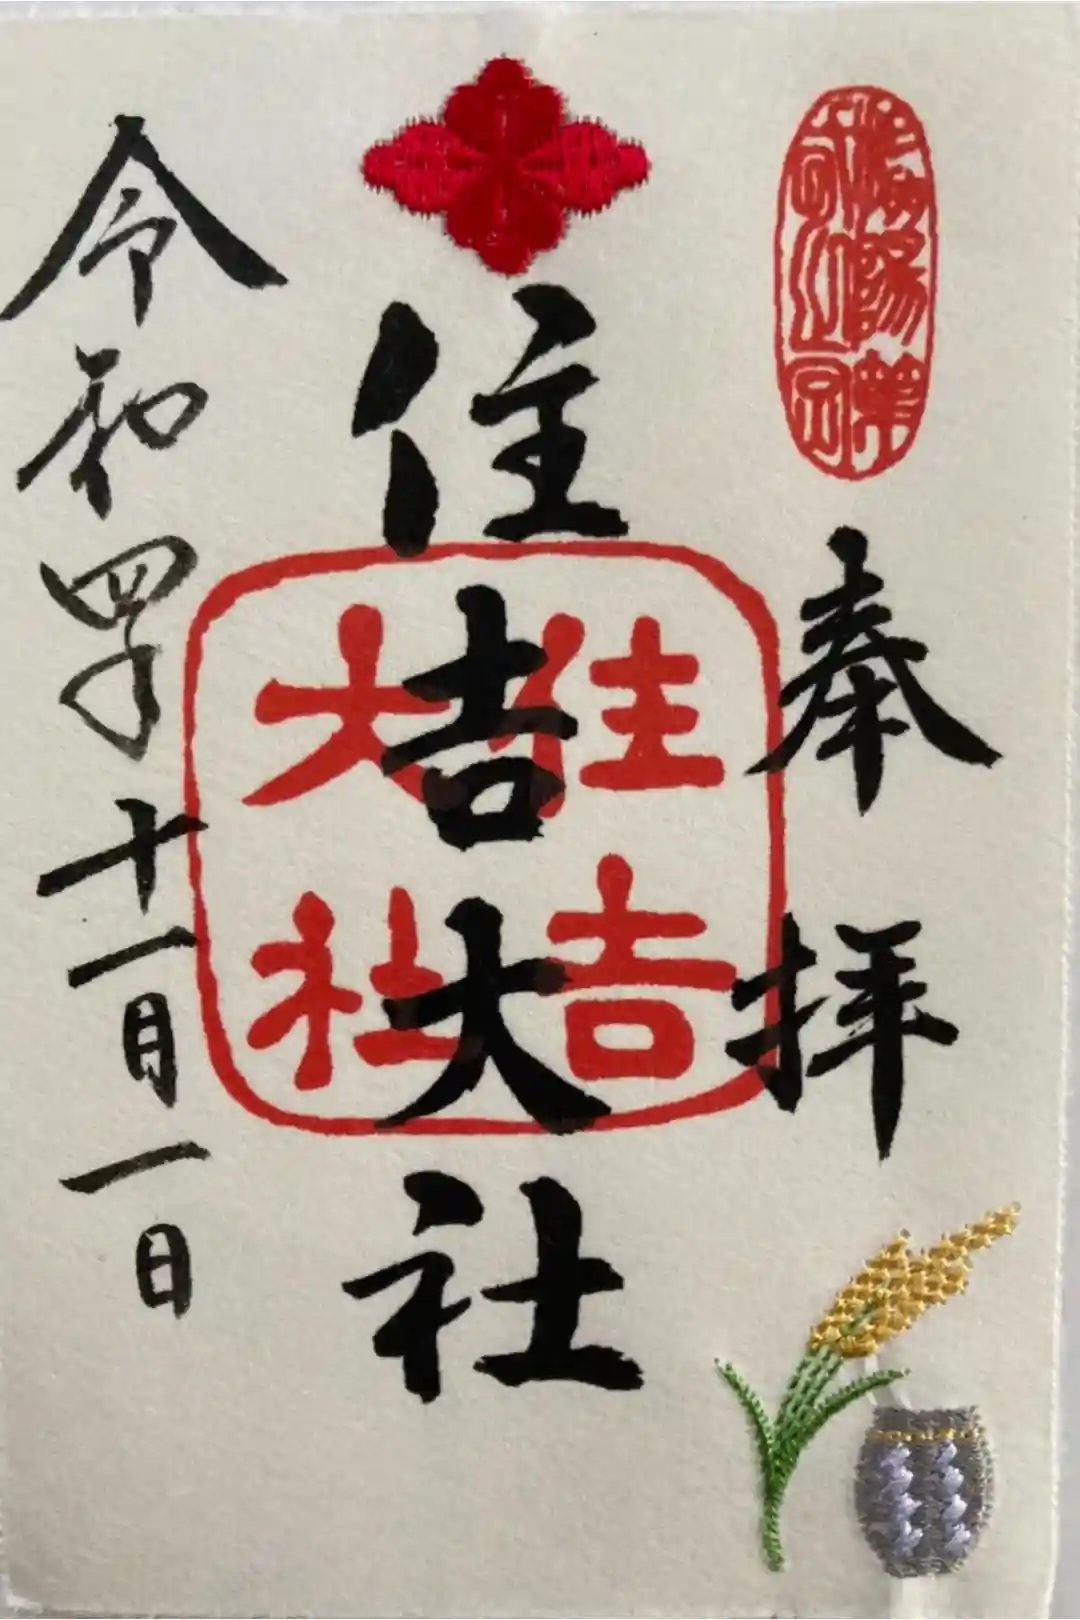 奉拝
住吉大社
住吉
大社
令和四年十一月一日